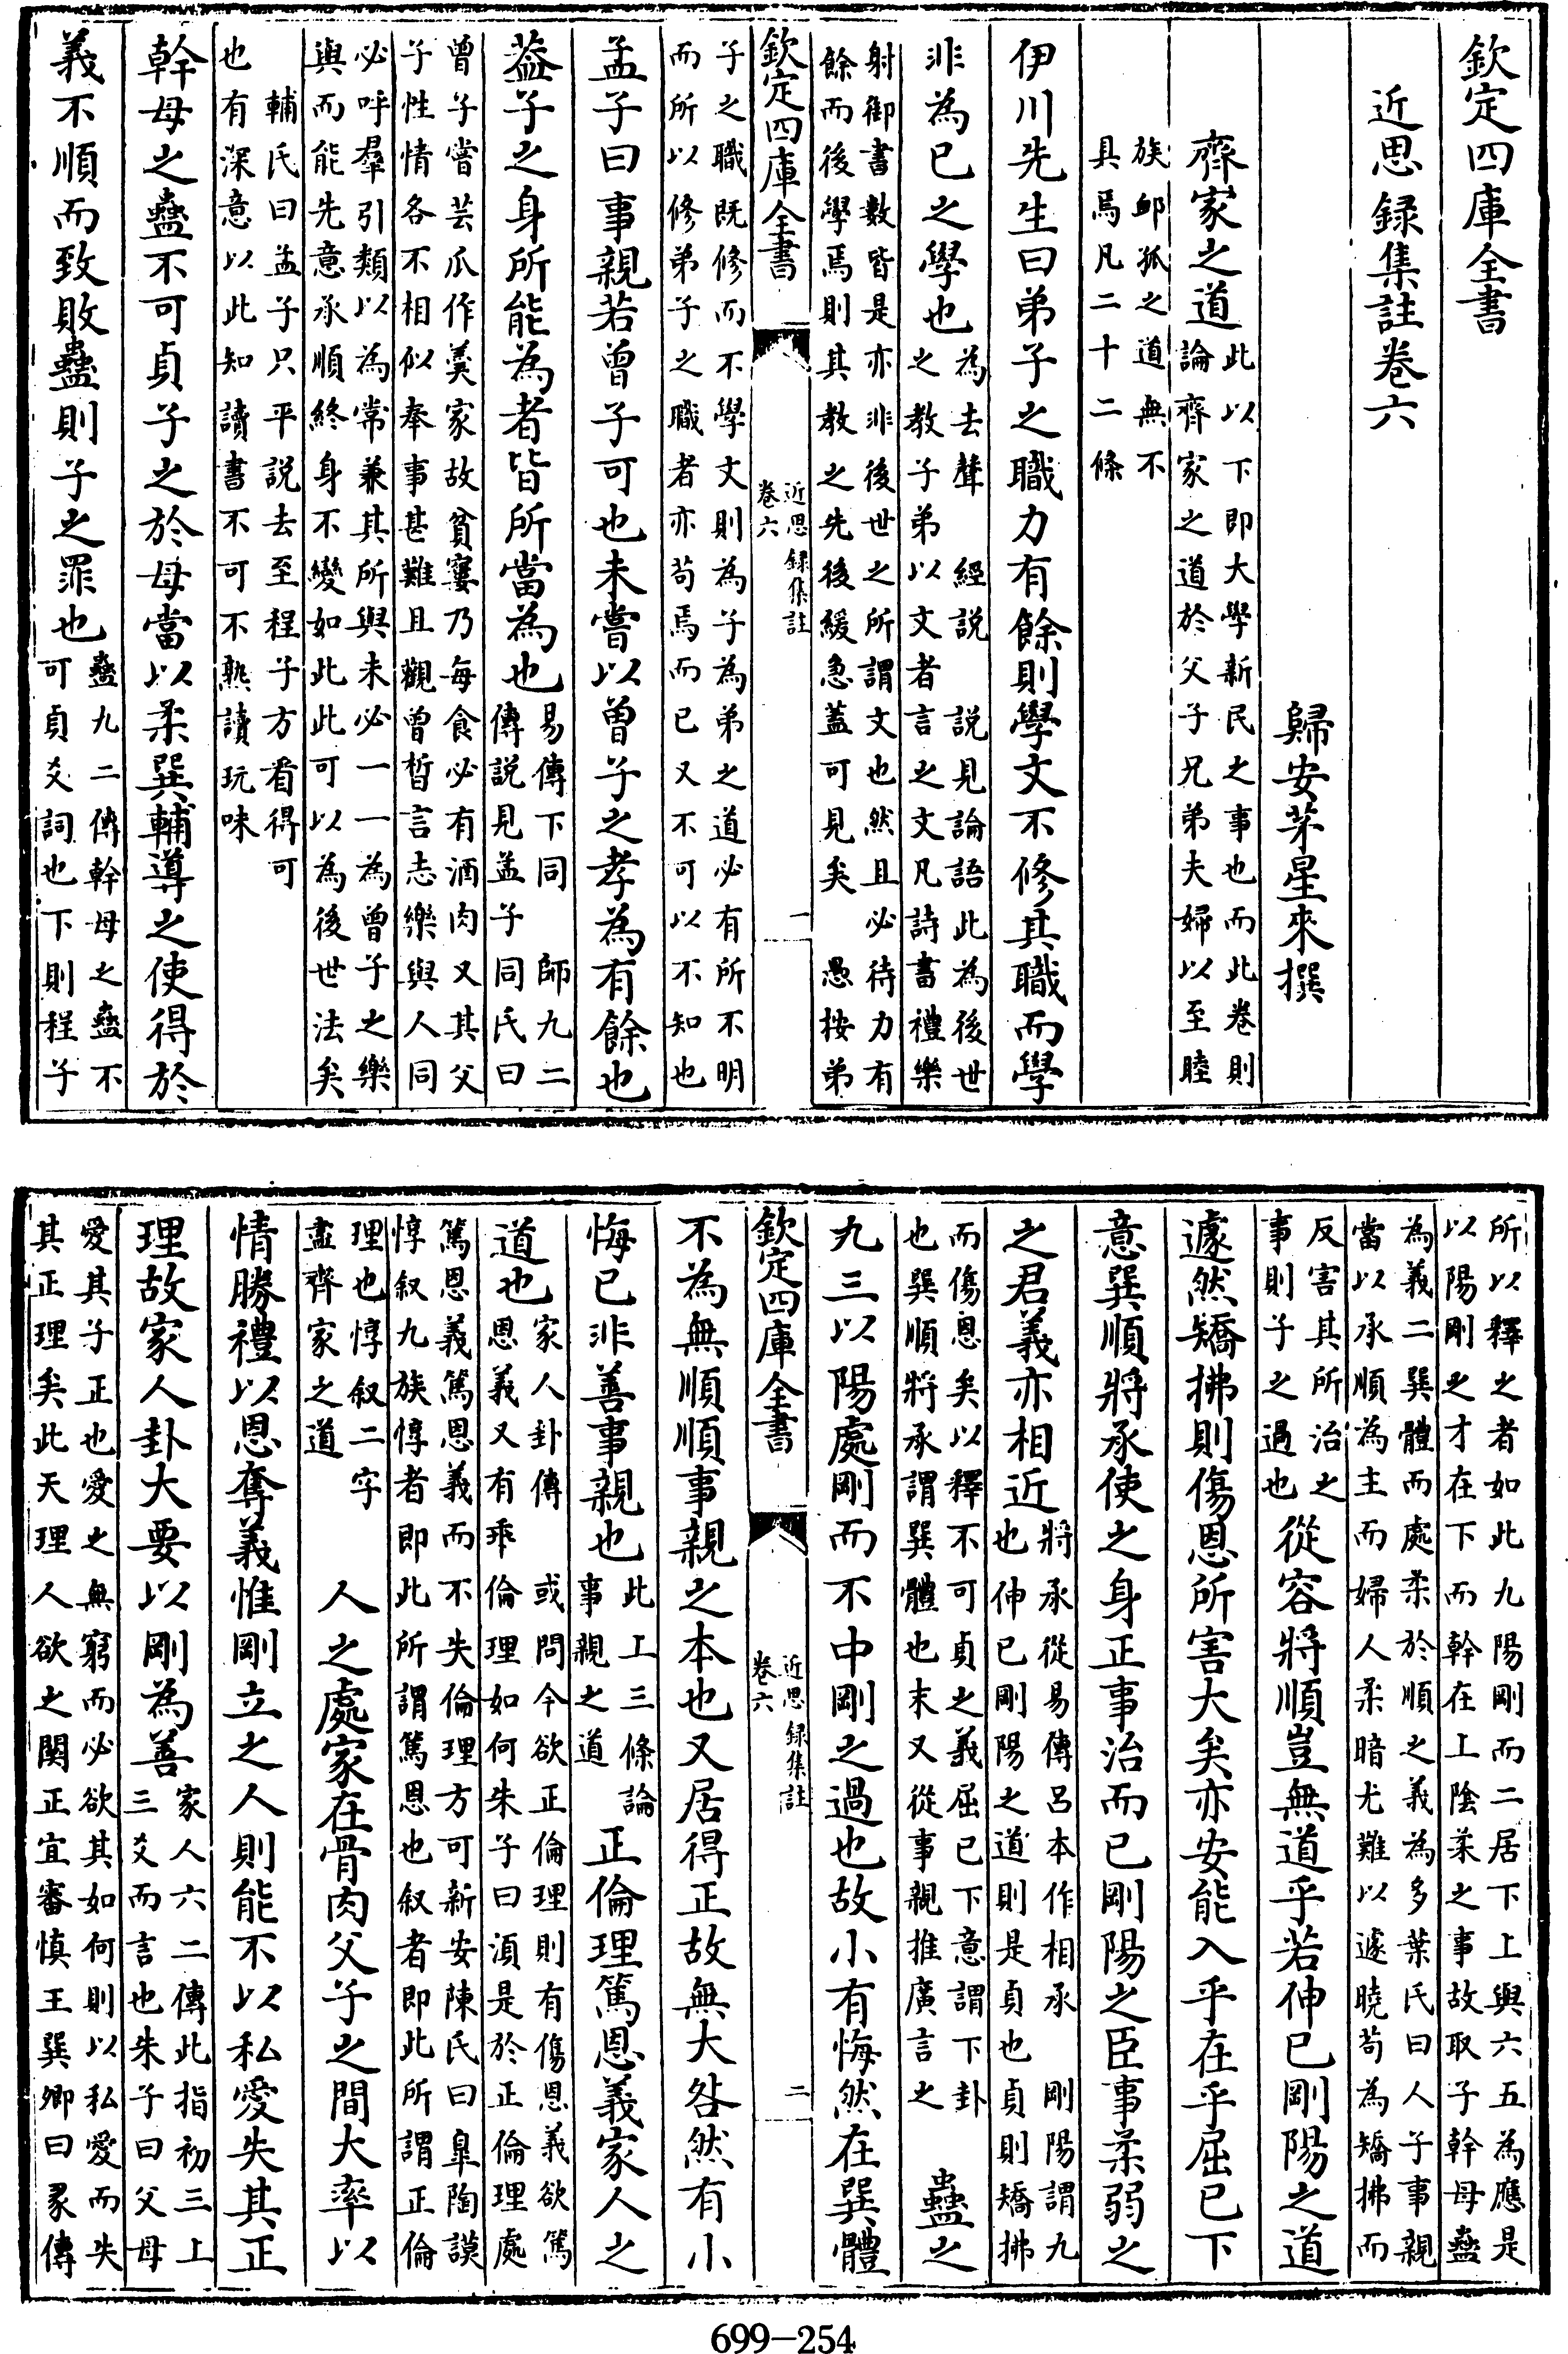 欽定四庫全書
近思録集註卷六
歸安茅星來撰
齊家之道此以下即大學新民之事也而此卷則
論齊家之道於父子兄弟夫婦以至睦
族䘏孤之道無不
具焉凡二十二條
伊川先生曰弟子之職力有餘則學文不修其職而學
非為已之學也為去聲 經説 説見論語此為後世
之教子弟以文者言之文凡詩書禮樂
射御書數皆是亦非後世之所謂文也然且必待力有
餘而後學焉則其教之先後緩急蓋可見矣 愚按弟
欽定四庫全書 近思録集註 卷六 一
子之職既修而不學文則為子為弟之道必有所不明
而所以修弟子之職者亦苟焉而已又不可以不知也
孟子曰事親若曾子可也未嘗以曾子之孝為有餘也
葢子之身所能為者皆所當為也易傳下同 師九二
傳説見孟子 同氏曰
曾子嘗芸瓜作羹家故貧窶乃每食必有酒肉又其父
子性情各不相似奉事甚難且觀曾晳言志樂與人同
必呼羣引類以為常兼其所與未必一一為曾子之樂
與而能先意承順終身不變如此此可以為後世法矣
輔氏曰孟子只平説去至程子方看得可
也有深意以此知讀書不可不熟讀玩味
幹母之蠱不可貞子之於母當以柔巽輔導之使得於
義不順而致敗蠱則子之罪也蠱九二傳幹母之蠱不
可貞爻詞也下則程子
所以釋之者如此九陽剛而二居下上與六五為應是
以陽剛之才在下而幹在上陰柔之事故取子幹母蠱
為義二巽體而處柔於順之義為多葉氏曰人子事親
當以承順為主而婦人柔暗尤難以遽曉苟為矯拂而
反害其所治之
事則子之過也從容將順豈無道乎若伸已剛陽之道
遽然矯拂則傷恩所害大矣亦安能入乎在乎屈已下
意巽順將承使之身正事治而已剛陽之臣事柔弱之
之君義亦相近將承從易傳吕本作相承 剛陽謂九
也伸已剛陽之道則是貞也貞則矯拂
而傷恩矣以釋不可貞之義屈已下意謂下卦
也巽順將承謂巽體也末又從事親推廣言之 蠱之
九三以陽處剛而不中剛之過也故小有悔然在巽體
欽定四庫全書 近思録集註 卷六 二
不為無順順事親之本也又居得正故無大咎然有小
悔已非善事親也此上三條論
事親之道 正倫理篤恩義家人之
道也家人卦傳 或問今欲正倫理則有傷恩義欲篤
恩義又有乖倫理如何朱子曰湏是於正倫理處
篤恩義篤恩義而不失倫理方可新安陳氏曰臯陶謨
惇叙九族惇者即此所謂篤恩也叙者即此所謂正倫
理也惇叙二字
盡齊家之道 人之處家在骨肉父子之間大率以
情勝禮以恩奪義惟剛立之人則能不以私愛失其正
理故家人卦大要以剛為善家人六二傳此指初三上
三爻而言也朱子曰父母
愛其子正也愛之無窮而必欲其如何則以私愛而失
其正理矣此天理人欲之関正宜審慎王巽卿曰彖傳
699-254